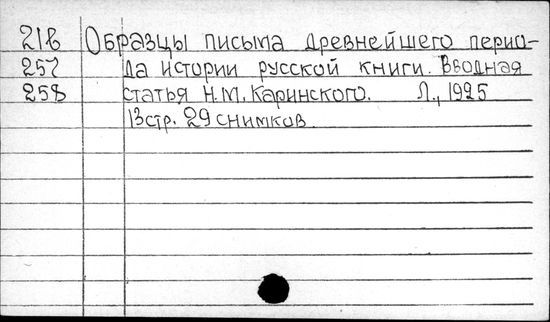 21б Образцы письма древнейшего перио-
257 да истории русской книги. Вводная
258 статья Н.М. Каринского. Л., 1925
13 стр. 29 снимков.